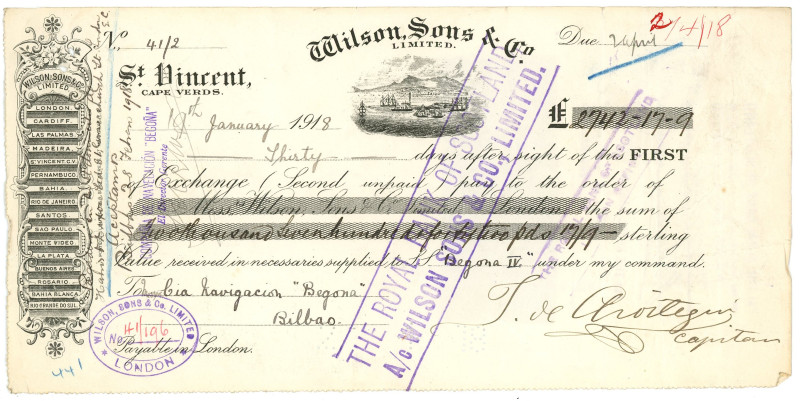 WILSON, SONS & Co.
LIMITED.
LONDON.
CARDIFF.
LAS PALMAS.
MADEIRA.
ST VINCENT C.V.
PERNAMBUCO.
BAHIA.
RIO DE JANEIRO.
SANTOS.
SAO PAULO
MONTE VIDEO
LA PLATA
BUENOS AIRES
ROSARIO
BAHIA BLANCA
RIO GRANDE DO SUL.
No. 41/2
Wilson, Sons & Co
LIMITED.
Due 2 April
2/4/18
St Vincent,
CAPE VERDS.
January 1918
£ 2742-17-9
Thirty days after sight of this FIRST
of Exchange (Second unpaid) pay to the order of
Messrs Wilson, Sons & Co Limited, London, the sum of
Two thousand seven hundred & forty two pds 17/9 — sterling
Value received in necessaries supplied to SS "Begona IV" under my command.
To Cia Navigacion "Begona"
Bilbao.
Payable in London.
Capitan
Accepted
NAVEGACIÓN "BEGOÑA"
El Director Gerente
THE ROYAL BANK OF SCOTLAND
A/c WILSON SONS & CO. LIMITED.
WILSON, SONS & Co. LIMITED
No 41/196
LONDON
441